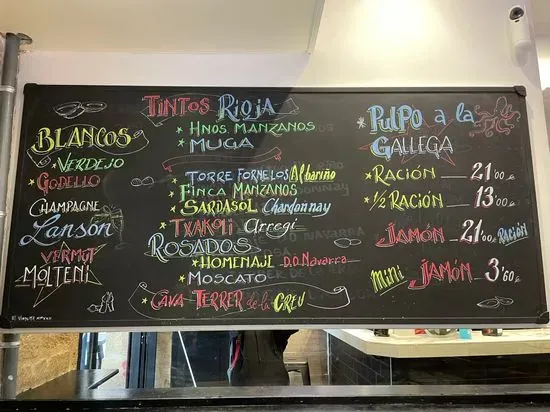 BLANCOS
* VERDEJO
* GODELLO
CHAMPAGNE
Lansón
VERMUT
MOLTENI
TINTOS RIOJA
* HNOS MANZANOS
* MUGA
* TORRE FORNELOS Albariño
* FINCA MANZANOS
* SARDASOL Chardonnay
* TXAKOLI Arregi
ROSADOS
* HOMENAJE D.O. Navarra
* MOSCATO
* CAVA TERRER de la CREU
* PULPO a la
GALLEGA
* RACIÓN 21'00
* 1/2 RACIÓN 13'00
* JAMÓN 21'00 RACIÓN
* mini JAMÓN 3'60